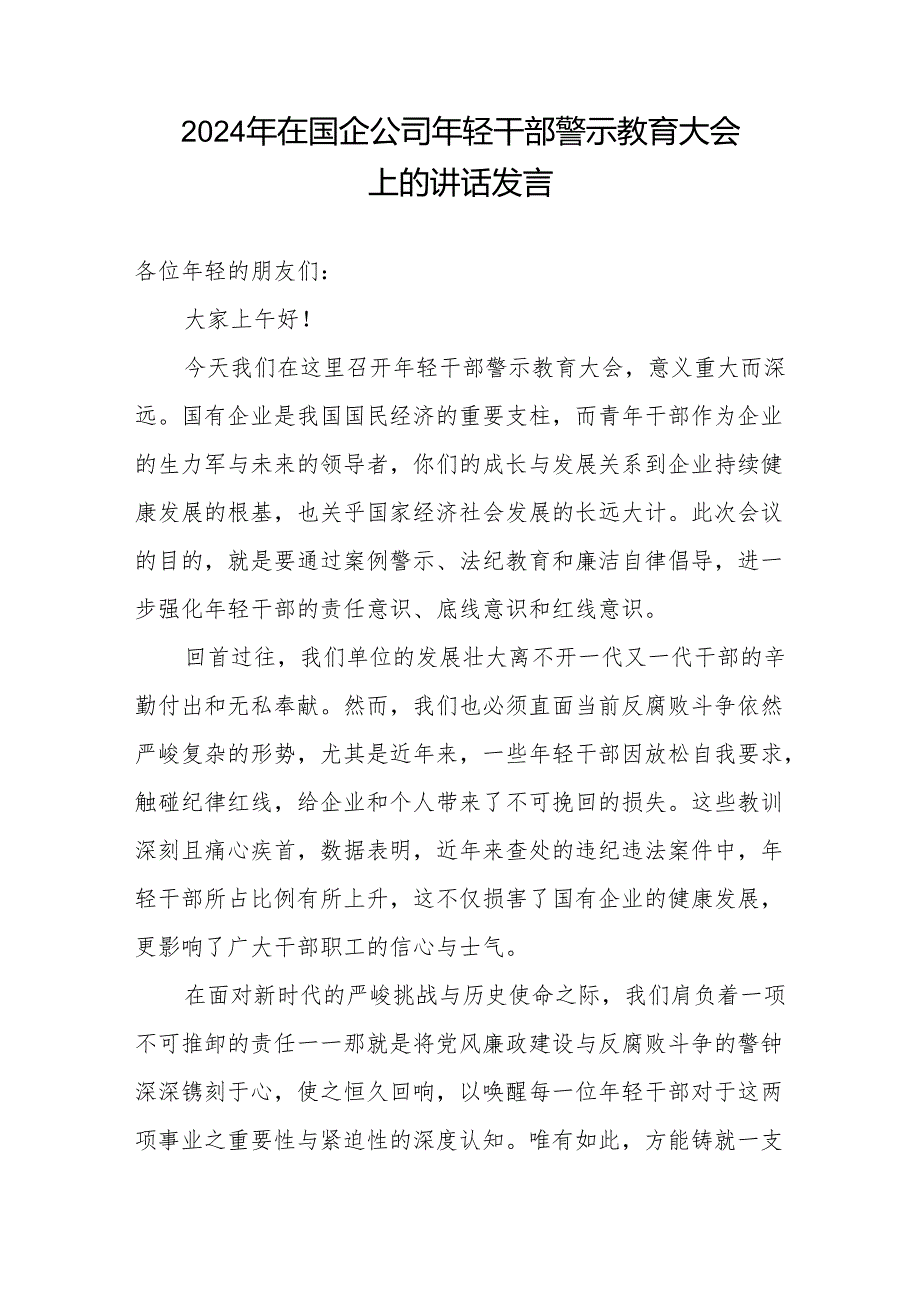 2024年在国企公司年轻干部警示教育大会
上的讲话发言
各位年轻的朋友们：
大家上午好！
今天我们在这里召开年轻干部警示教育大会，意义重大而深
远。国有企业是我国国民经济的重要支柱，而青年干部作为企业
的生力军与未来的领导者，你们的成长与发展关系到企业持续健
康发展的根基，也关乎国家经济社会发展的长远大计。此次会议
的目的，就是要通过案例警示、法纪教育和廉洁自律倡导，进一
步强化年轻干部的责任意识、底线意识和红线意识。
回首过往，我们单位的发展壮大离不开一代又一代干部的辛
勤付出和无私奉献。然而，我们也必须直面当前反腐败斗争依然
严峻复杂的形势，尤其是近年来，一些年轻干部因放松自我要求，
触碰纪律红线，给企业和个人带来了不可挽回的损失。这些教训
深刻且痛心疾首，数据表明，近年来查处的违纪违法案件中，年
轻干部所占比例有所上升，这不仅损害了国有企业的健康发展，
更影响了广大干部职工的信心与士气。
在面对新时代的严峻挑战与历史使命之际，我们肩负着一项
不可推卸的责任一一那就是将党风廉政建设与反腐败斗争的警钟
深深镌刻于心，使之恒久回响，以唤醒每一位年轻干部对于这两
项事业之重要性与紧迫性的深度认知。唯有如此，方能铸就一支